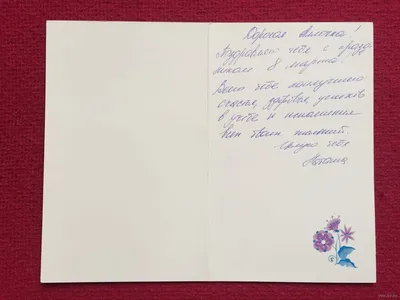 Дорогая Аллочка!
Поздравляю тебя с празд
ником 8 марта!
Всего тебе наилучшего
счастья, здоровья, успехов
в учебе и исполнения
всех твоих желаний.
Целую тебя
Наташа